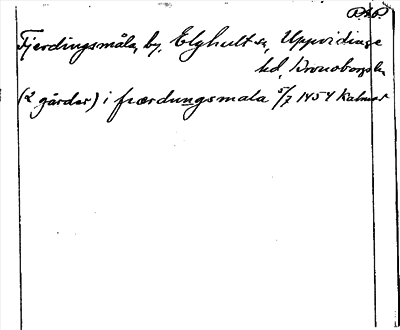 Fjerdingsmåla, by, Elghult sn, Uppvidinge
hd, Kronobergs län
(2 gårdar) i fiærdungsmala 5/7 1454 Kalmar